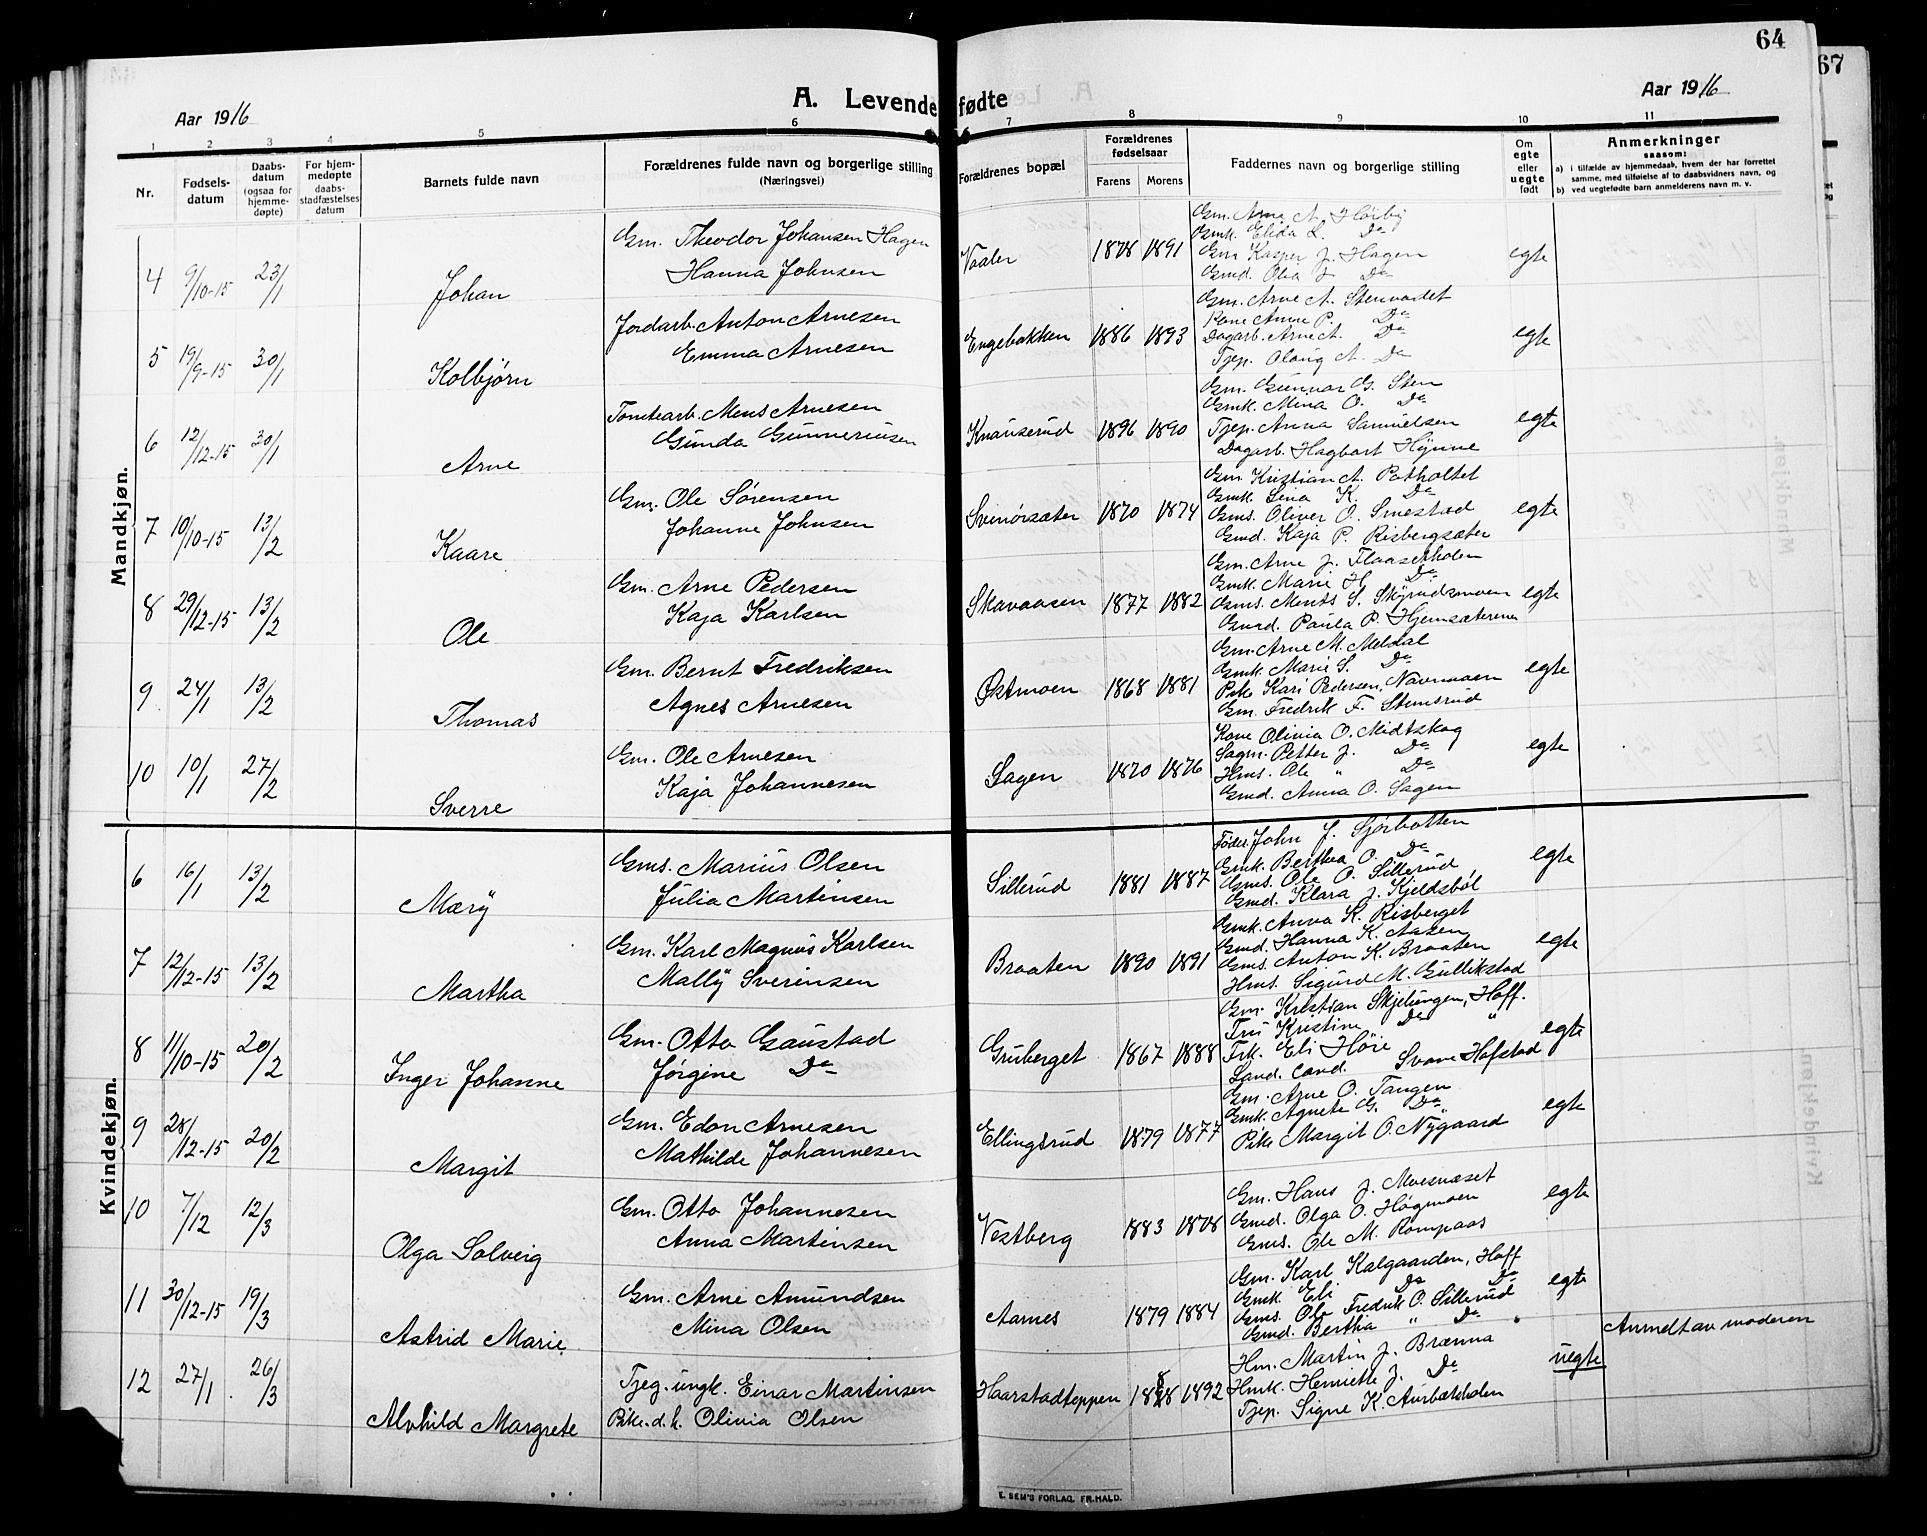 64
67
Aar 1916
A. Levende fødte
Aar 1916
1 2 3 4 5 6 7 8 9 10 11
Nr.
Fødsels-
datum
Daabs-
datum
(ogsaa for
hjemme-
døpte)
For hjem-
medøpte
daabs-
stadfæstelses
datum
Barnets fulde navn
Forældrenes fulde navn og borgerlige stilling
(Næringsvei)
Forældrenes bopæl
Forældrenes
fødselsaar
Farens Morens
Faddernes navn og borgerlige stilling
Om
egte
eller
uegte
født
Anmerkninger
saasom:
a) i tilfælde av hjemmedaab, hvem der har forrettet
samme, med tilføielse af to daabsvidners navn, og
b) ved uegtefødte barn anmelderens navn m. v.
Mandkjøn.
4 9/10-15 23/1 Johan
Gm. Theodor Johansen Hagen
Hanna Johnsen
Vaaler 1878 1891
Gm. Arne A. Hørby
Gmk. Elida L. Do
Gm. Kasper J. Hagen
Gmd. Olia J. Do
egte
5 19/9-15 30/1 Kolbjørn
Jordarb. Anton Arnesen
Emma Arnesen
Engebakken 1886 1893
Gm. Arve A. Stenvadet
Kone Anne P. Do
Dagarb. Arne A. Do
Tjep. Olaug A. Do
egte
6 12/12-15 30/1 Arne
Tomtearb. Mens Arnesen
Gunda Gunneriusen
Knauserud 1896 1890
Gm. Gunnar G. Sten
Gmk. Mina O. Do
Tjep. Anna Samuelsen
Dagarb. Hagbart Hynne
egte
7 10/10-15 13/2 Kaare
Gm. Ole Sørensen
Johanne Johnsen
Svenørsæter 1870 1874
Gm. Kristian A. Potholtet
Gmk. Lina K. Do
Gms. Oliver O. Smestad
Gmd. Kaja P. Risbergsæter
egte
8 29/12-15 13/2 Ole
Gm. Arne Pedersen
Kaja Karlsen
Skavaasen 1877 1882
Gm. Arne J. Flaaserholen
Gmk. Marie H. Do
Gms. Ments S. Skyrudsmoen
Gmd. Paula P. Hjemsæterene
egte
9 24/1 13/2 Thomas
Gm. Bernt Fredriksen
Agnes Arnesen
Østmoen 1868 1881
Gm. Arne M. Meldal
Gmk. Marie S. Do
Pike Kari Pedersen, Navnmoen
Gm. Fredrik F. Stemsrud
egte
10 10/1 27/2 Sverre
Gm. Ole Arnesen
Kaja Johannesen
Sagen 1870 1876
Kone Olivia O. Midtskog
Sagm. Petter J. Do
Hms. Ole " Do
Gmd. Anna O. Sagen
egte
Kvindekjøn.
6 16/1 13/2 Mary
Gms. Marius Olsen
Julia Martinsen
Sillerud 1881 1887
Føder. John J. Sjørbotten
Gmk. Berthea O. Do
Gms. Ole O. Sillerud
Gmd. Klara J. Kjeldsbøl
egte
7 12/12-15 13/2 Martha
Gm. Karl Magnus Karlsen
Mally Sverinsen
Braaten 1890 1891
Gmk. Anna K. Risberget
Gmd. Hanna K. Aasen
Gms. Anton K. Braaten
Hms. Sigurd M. Gullikstad
egte
8 11/10-15 20/2 Inger Johanne
Gm. Otto Gaustad
Jørgine Do
Gruberget 1867 1888
Gm. Kristian Skjelungen, Hoff.
Fru Kristine Do "
Frk. Eli Høie
Land. cand. Svane Hofstad
egte
9 28/12-15 20/2 Margit
Gm. Edon Arnesen
Mathilde Johannesen
Ellingsrud 1879 1877
Gm. Arne O. Tangen
Gmk. Agnete G. Do
Pike Margit O. Nygaard
egte
10 7/12 12/3 Olga Solveig
Gm. Otto Johannesen
Anna Martinsen
Vestberg 1883 1878
Gm. Hans J. Moesnæset
Gmd. Olga O. Høgmoen
Gms. Ole M. Rompaas
egte
11 30/12-15 19/3 Astrid Marie
Gm. Arne Amundsen
Mina Olsen
Aarnes 1879 1884
Gm. Karl Kalgaarden, Hoff
Gmk. Eli Do Do
Gms. Ole Fredrik O. Sillerud
Gmd. Bertha " Do
egte
12 27/1 26/3 Alvhild Margrete
Tjeg. ungk. Einar Martinsen
Pike. d.h. Olivia Olsen
Haarstadteppen 1888 1892
Hm. Martin J. Brænna
Hmk. Henriette J. Do
Tjep. Signe K. Aurbækholen
uegte
Anmeldt av moderen
E. SEM'S FORLAG. FR.HALD.